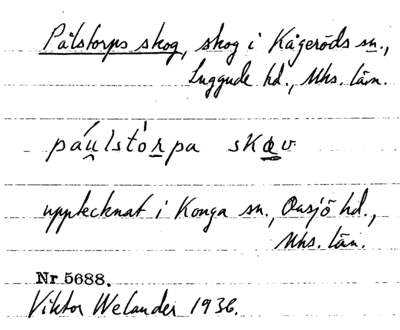 Pålstorps skog, skog i Kågeröds sn.,
Luggude hd., Mhs. län.
páu̯lstòrpa skɑv
upptecknat i Konga sn., Onsjö hd.,
Mhs. län.
Nr 5688.
Viktor Welander 1936.